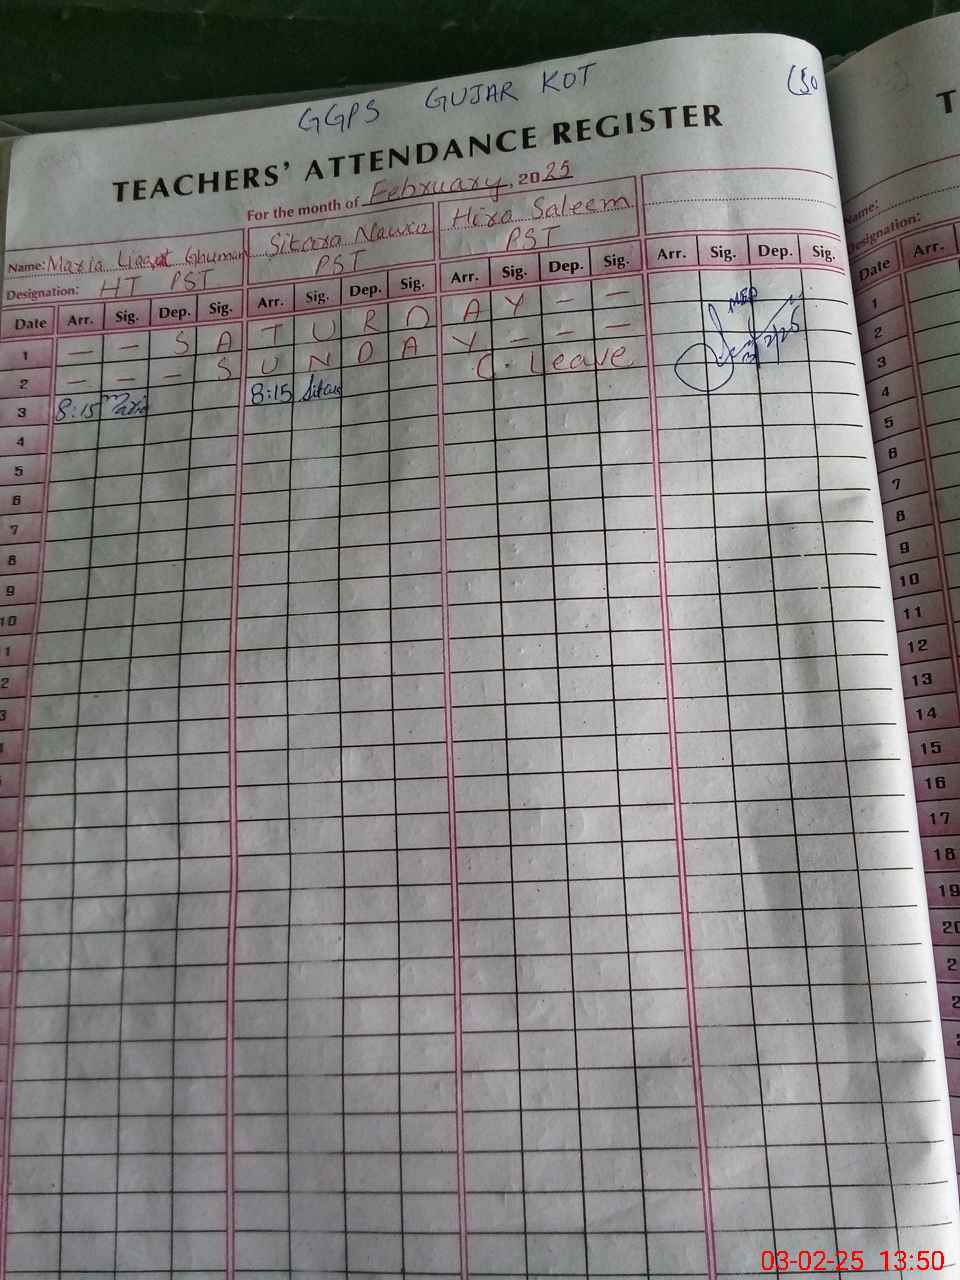 GGPS GUJAR KOT
TEACHERS' ATTENDANCE REGISTER
For the month of February, 2025
Name: Maria Liaqat Ghuman Sitara Nawaz Hira Saleem
Designation: HT PST PST PST
Date Arr. Sig. Dep. Sig. Arr. Sig. Dep. Sig. Arr. Sig. Dep. Sig. Arr. Sig. Dep. Sig.
1 — — S A T U R D A Y — —
2 — — — S U N D A Y — — —
3 8:15 Maria 8:15 Sitara C. Leave
MEO
4
5
6
7
8
9
10
1
2
3
T
Name:
Designation:
Date Arr.
1
2
3
4
5
6
7
8
9
10
11
12
13
14
15
16
17
18
19
20
2
2
03-02-25 13:50